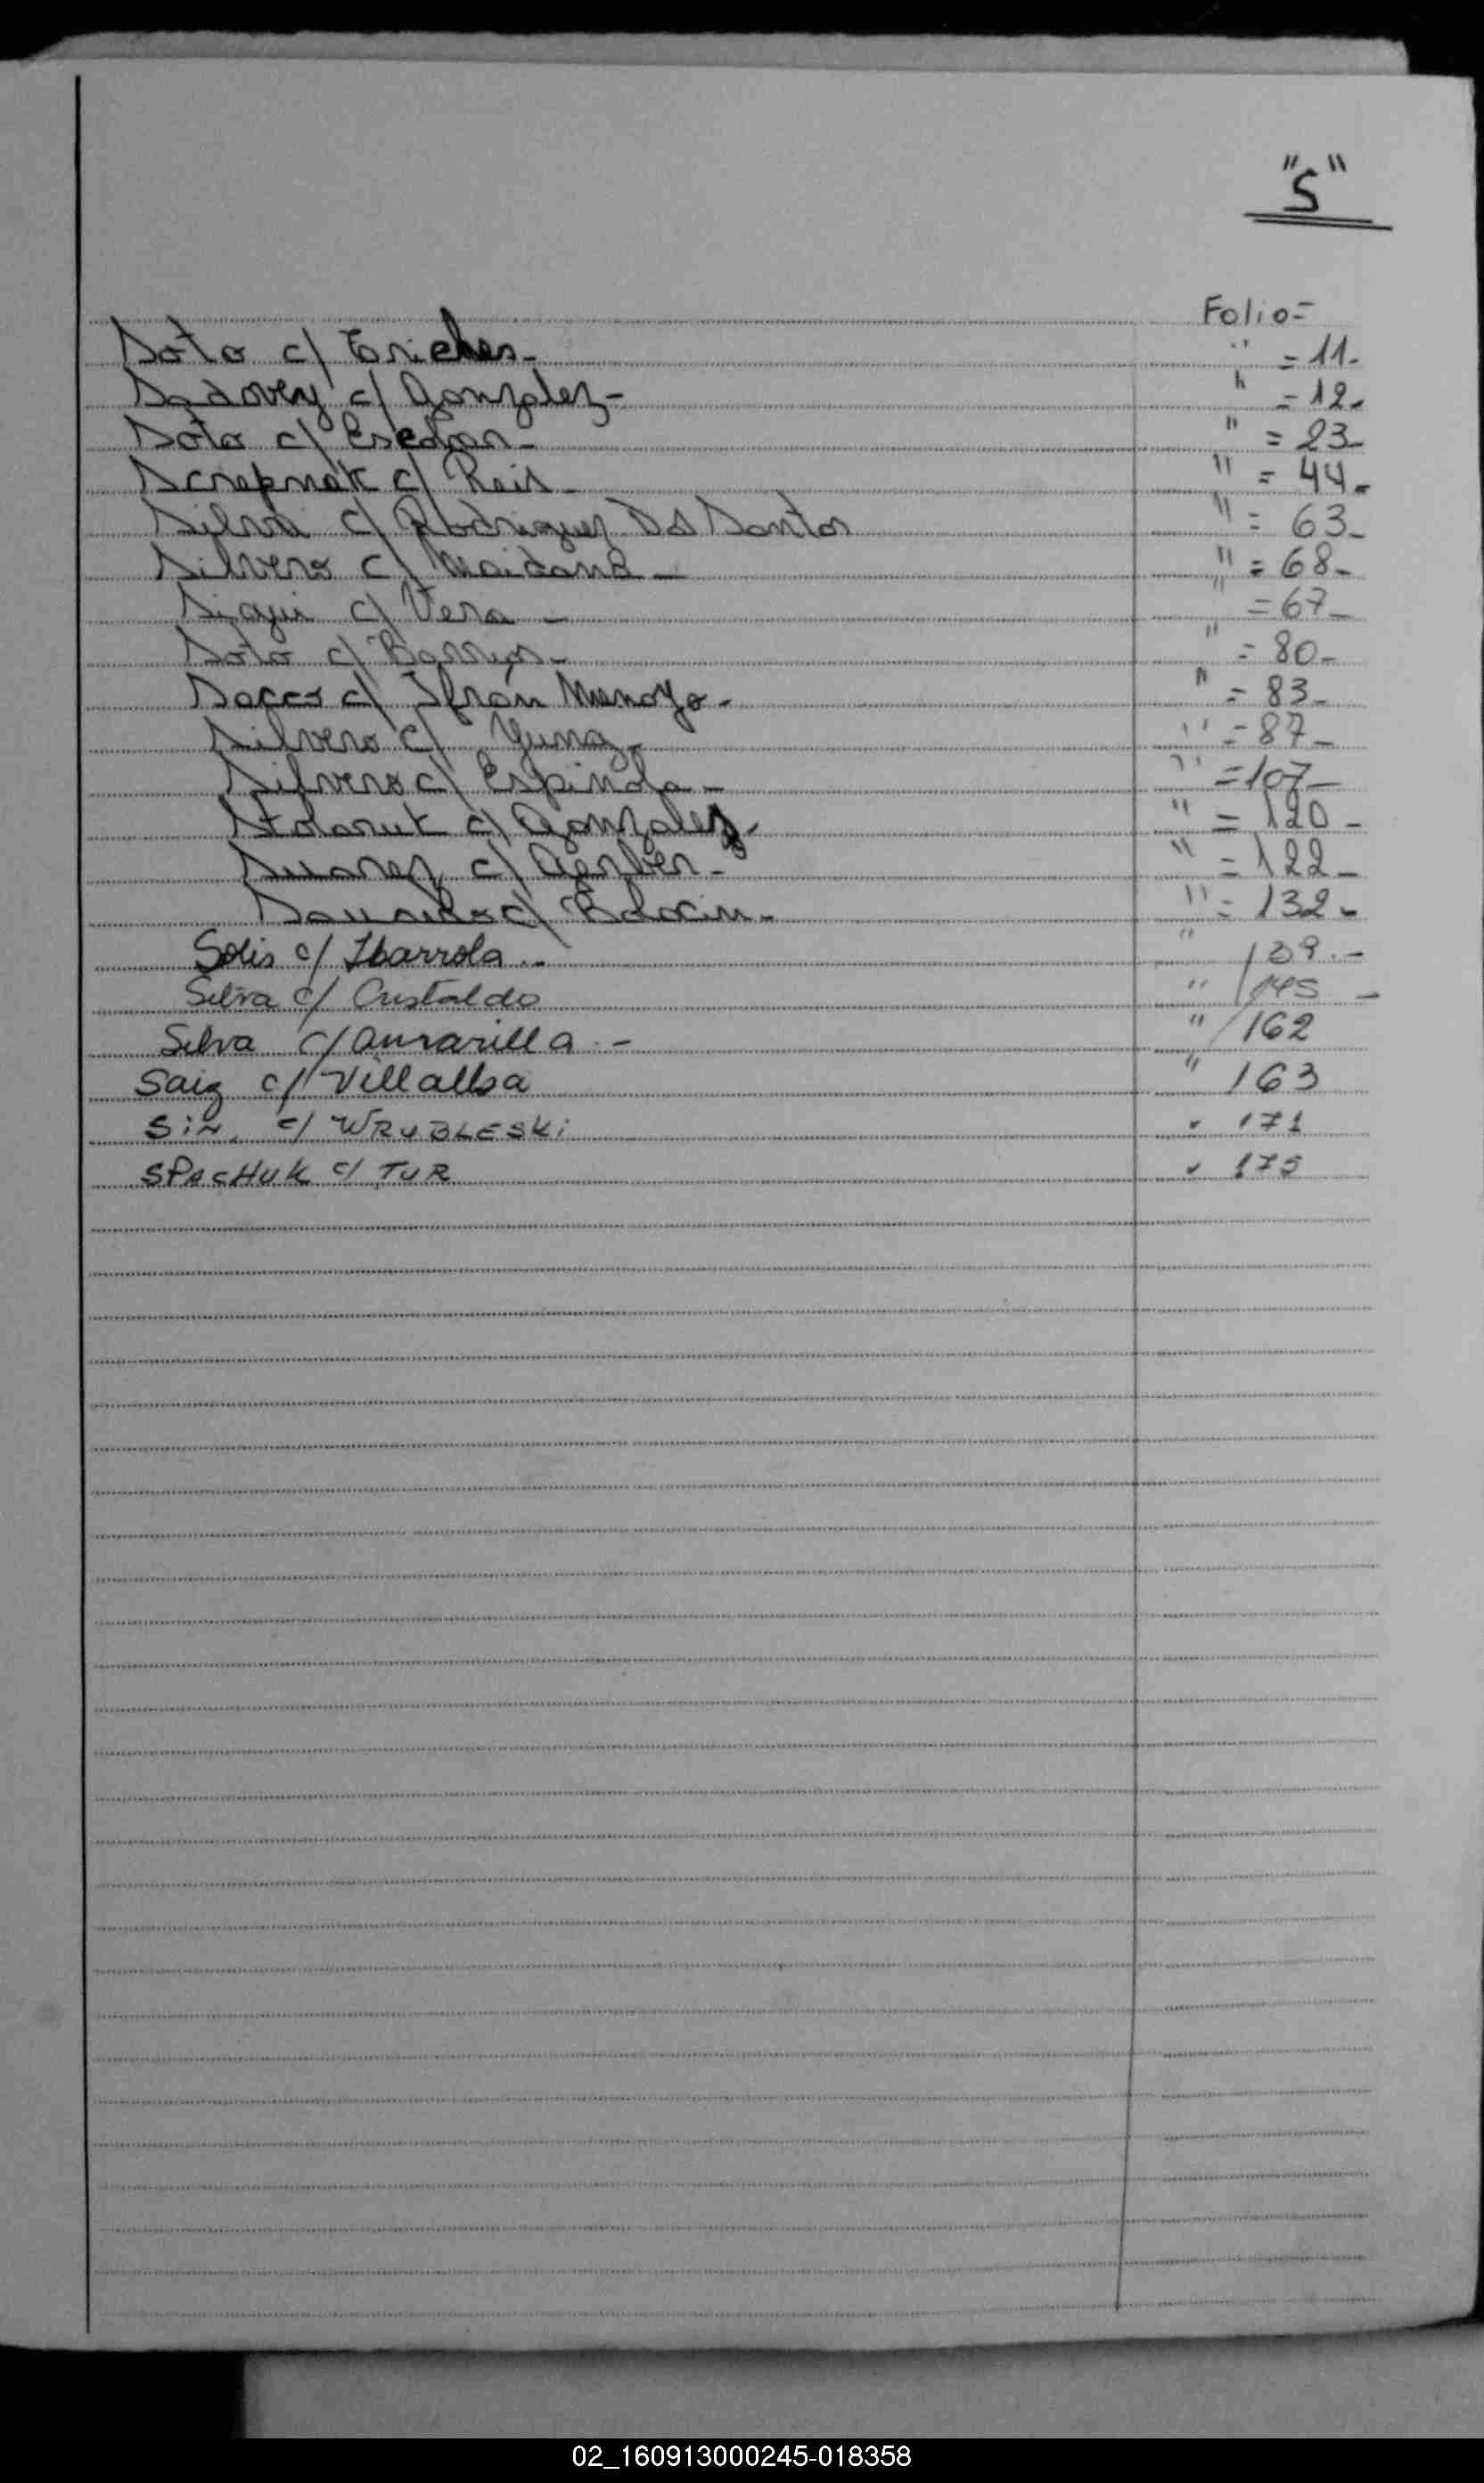 "S"
Folio=
Soto c/ Enriches- " = 11.-
Sadovey c/ Gonzalez- " = 12.-
Soto c/ - " = 23-
Screpnak c/ Reis- " = 44.-
Silva c/ Rodriguez Dos Santos " = 63-
Silvero c/ Maidana- " = 68-
c/ Vera- " = 67-
Soto c/ Barrios- " = 80-
Socco c/ Ifrán Menoyo.- " = 83-
Silvero c/ Yung- " = 87-
Silvero c/ Espinola- " = 107-
Stolaruk c/ Gonzalez.- " = 120-
Suarez c/ Gerber- " = 122-
c/ - " = 132-
Solis c/ Ibarrola.- " 139.-
Silva c/ Cristaldo " 145-
Silva c/ .- " 162
Saiz c/ Villalba " 163
SiN. c/ WRUBLESKi " 171
SPACHUK c/ TUR " 175
02_160913000245-018358